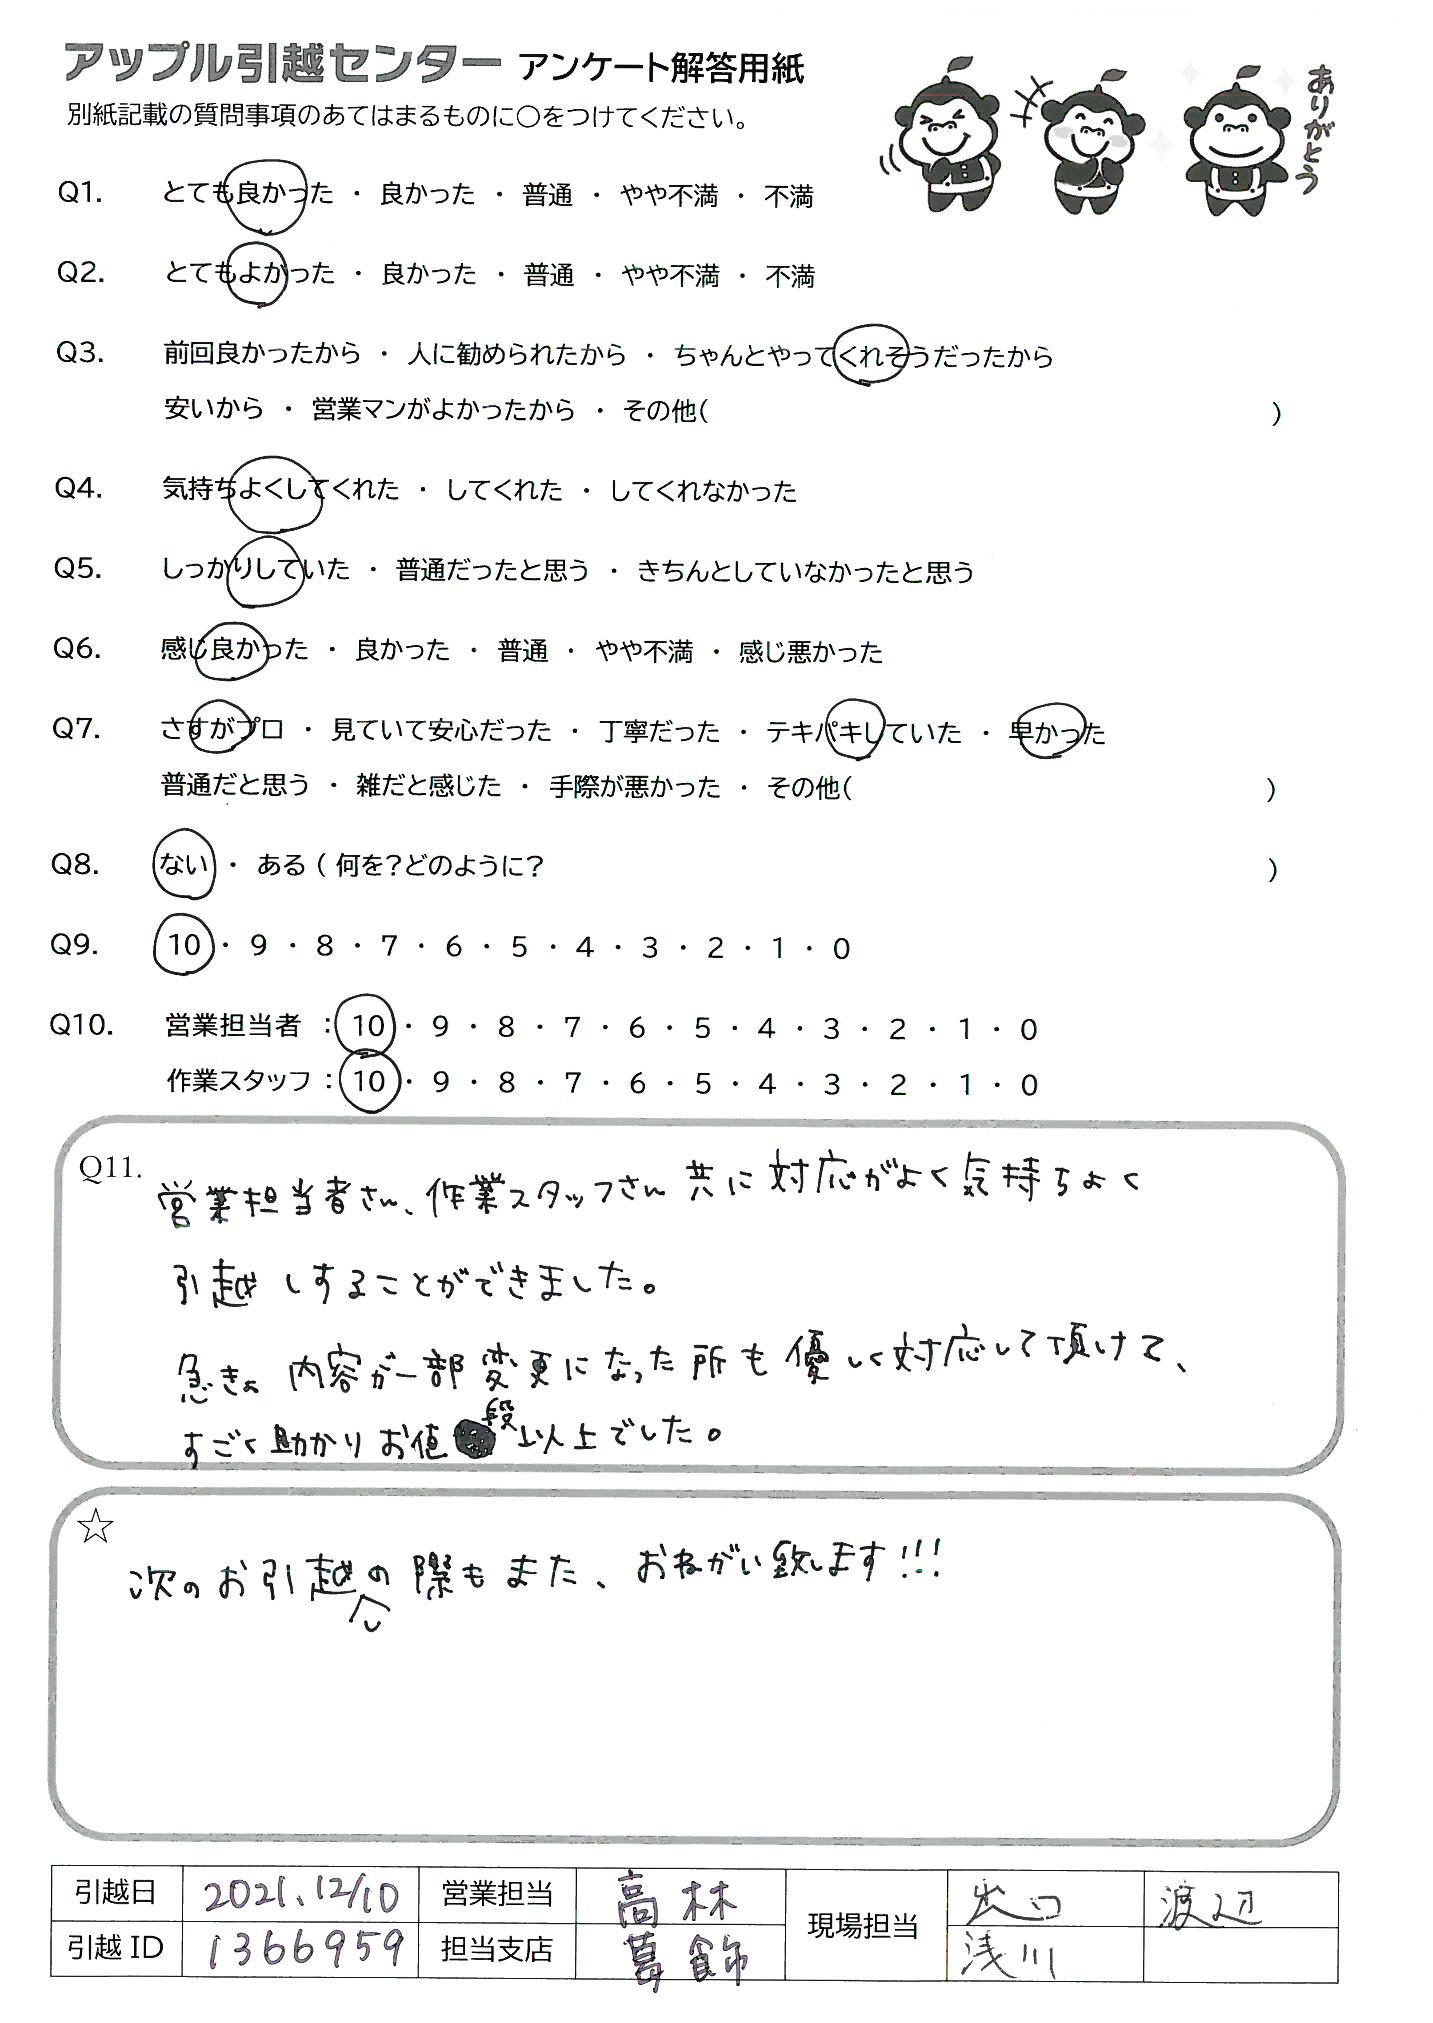 アップル引越センター アンケート解答用紙
別紙記載の質問事項のあてはまるものに○をつけてください。
ありがとう
Q1. とても良かった ・ 良かった ・ 普通 ・ やや不満 ・ 不満
Q2. とてもよかった ・ 良かった ・ 普通 ・ やや不満 ・ 不満
Q3. 前回良かったから ・ 人に勧められたから ・ ちゃんとやってくれそうだったから
安いから ・ 営業マンがよかったから ・ その他( )
Q4. 気持ちよくしてくれた ・ してくれた ・ してくれなかった
Q5. しっかりしていた ・ 普通だったと思う ・ きちんとしていなかったと思う
Q6. 感じ良かった ・ 良かった ・ 普通 ・ やや不満 ・ 感じ悪かった
Q7. さすがプロ ・ 見ていて安心だった ・ 丁寧だった ・ テキパキしていた ・ 早かった
普通だと思う ・ 雑だと感じた ・ 手際が悪かった ・ その他( )
Q8. ない ・ ある ( 何を?どのように? )
Q9. 10 ・ 9 ・ 8 ・ 7 ・ 6 ・ 5 ・ 4 ・ 3 ・ 2 ・ 1 ・ 0
Q10. 営業担当者 : 10 ・ 9 ・ 8 ・ 7 ・ 6 ・ 5 ・ 4 ・ 3 ・ 2 ・ 1 ・ 0
作業スタッフ : 10 ・ 9 ・ 8 ・ 7 ・ 6 ・ 5 ・ 4 ・ 3 ・ 2 ・ 1 ・ 0
Q11. 営業担当者さん、作業スタッフさん 共に対応がよく気持ちよく
引越しすることができました。
急きょ 内容が一部変更になった所も優しく対応して頂けて、
すごく助かりお値段以上でした。
☆
次のお引越しの際もまた、おねがい致します!!!
引越日 2021.12/10 営業担当 高林 現場担当 出口 渡辺
引越ID 1366959 担当支店 葛飾 浅川